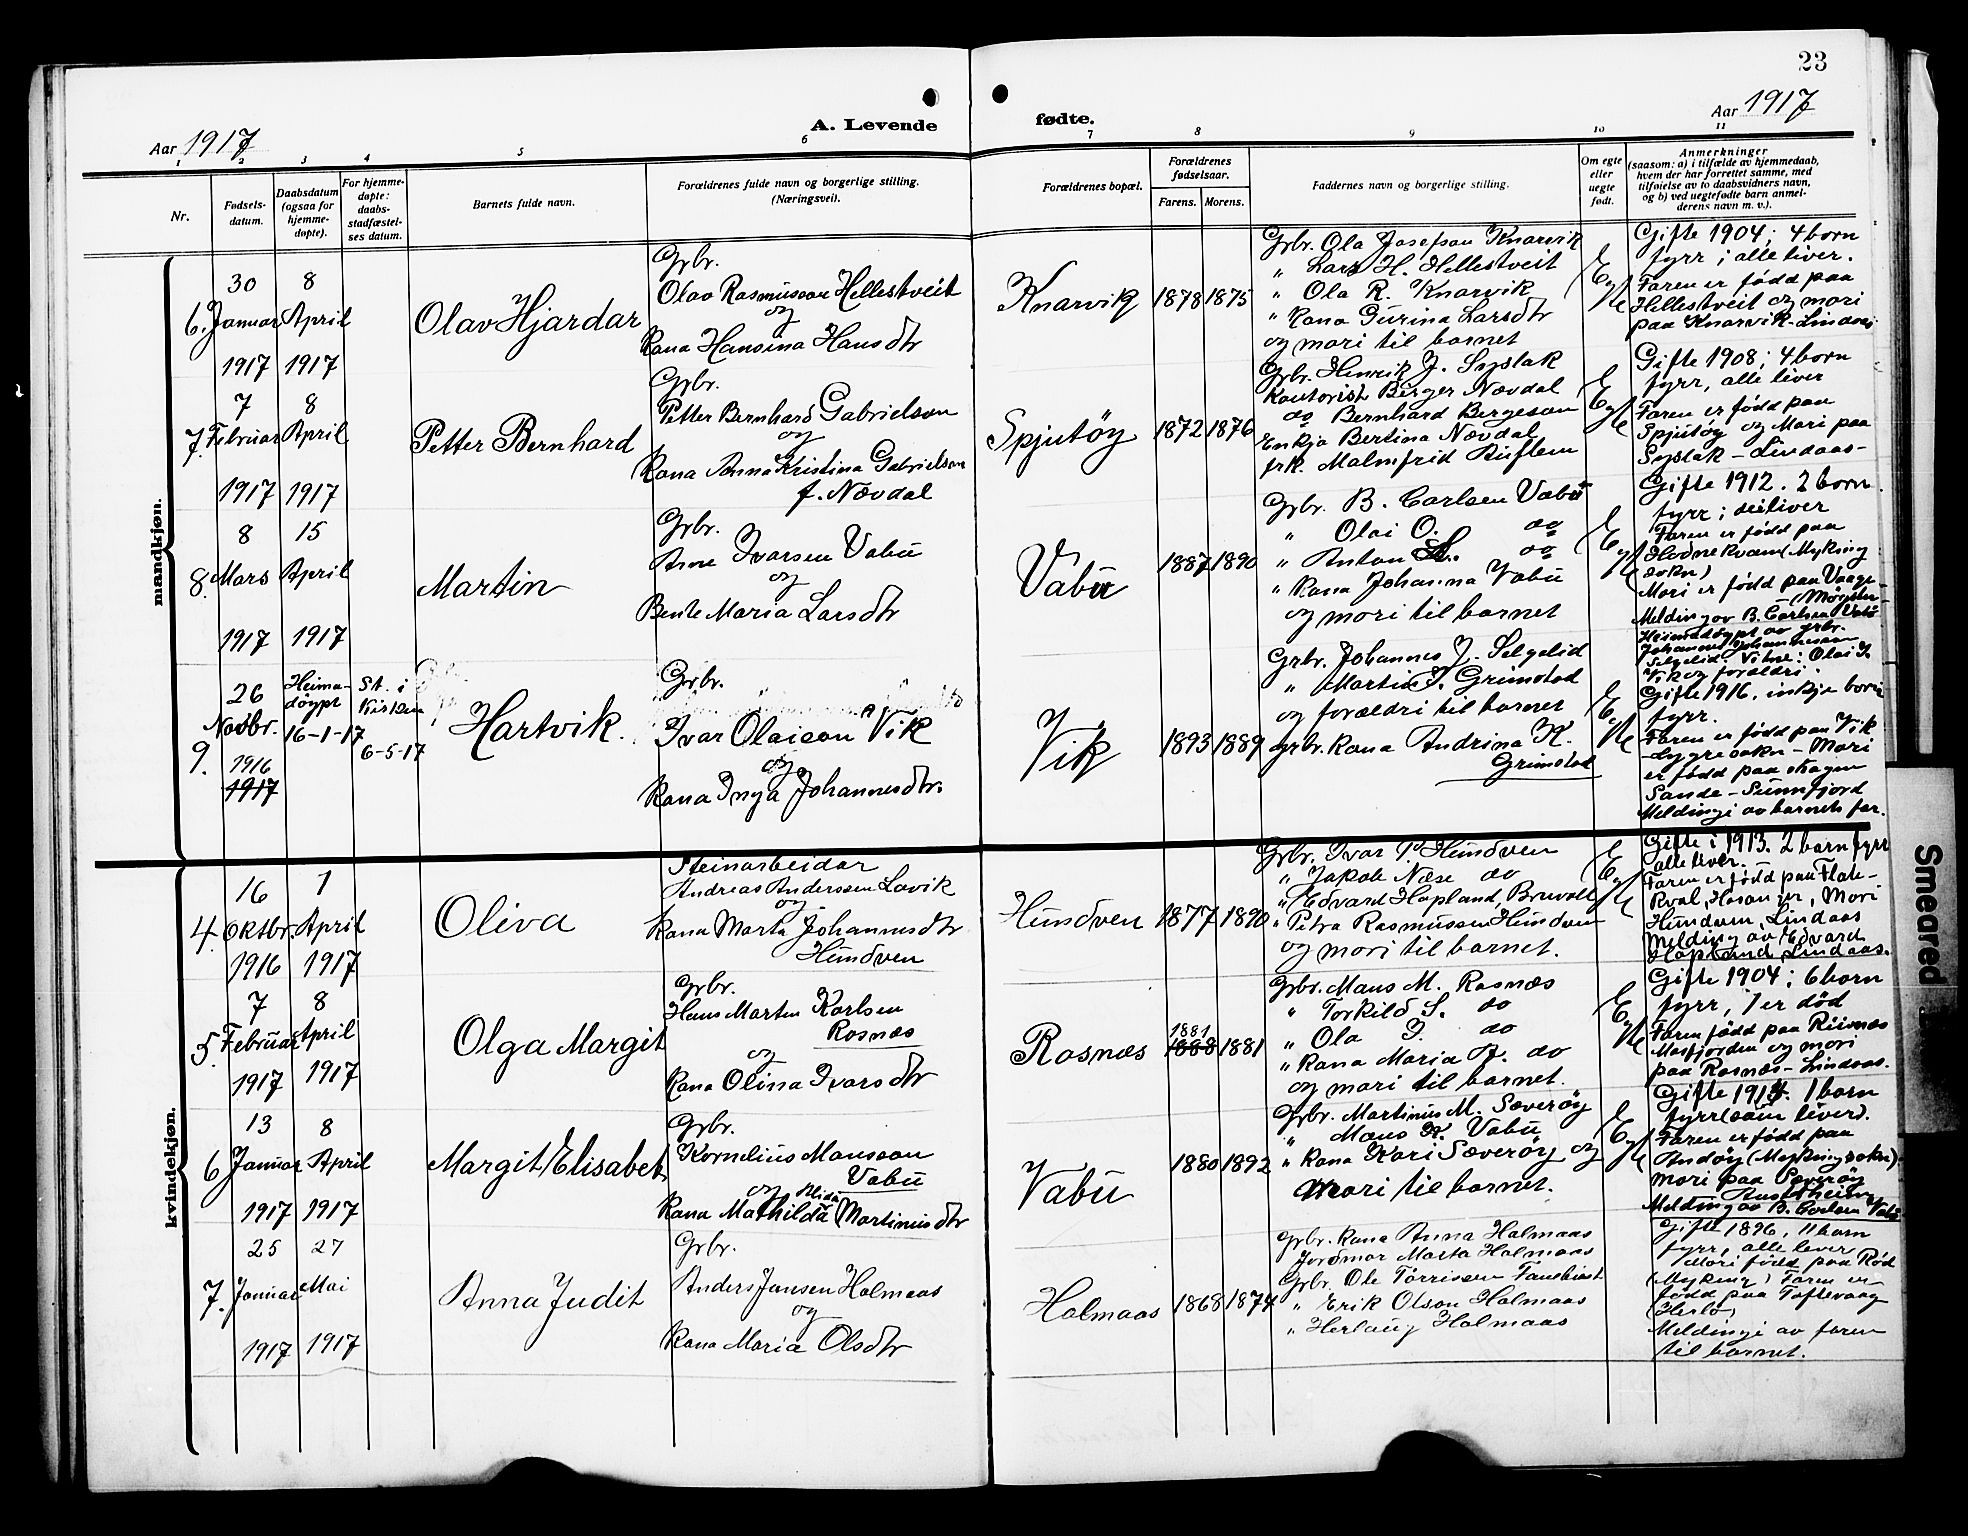 23
Aar 1917
A. Levende
fødte.
Aar 1917
1 2 3 4 5 6 7 8 9 10 11
Nr.
Fødsels-
datum.
Daabsdatum
(ogsaa for
hjemme-
døpte).
For hjemme-
døpte:
daabs-
stadfæstel-
ses datum.
Barnets fulde navn.
Forældrenes fulde navn og borgerlige stilling.
(Næringsvei).
Forældrenes bopæl.
Forældrenes
fødselsaar.
Farens. Morens.
Faddernes navn og borgerlige stilling.
Om egte
eller
uegte
født.
Anmerkninger
(saasom: a) i tilfælde av hjemmedaab,
hvem der har forrettet samme, med
tilføielse av to daabsvidners navn,
og b) ved uegtefødte barn anmel-
derens navn m. v.).
mandkjøn.
6.
30
Januar
1917
8
April
1917
Olav Hjardar
Grbr.
Olav Rasmusson Hellestveit
og
Kona Hansina Hansdtr
Knarvik
1878 1875
Grbr. Ola Josefson Knarvik
" Lars H. Hellestveit
" Ola R. Knarvik
" Kona Gurina Larsdtr
og mori til barnet
Egte
Gifte 1904; 4 born
fyrr; alle liver.
Faren er fødd paa
Hellestveit og mori
paa Knarvik-Lindaas
7.
7
Februar
1917
8
April
1917
Petter Bernhard
Grbr.
Petter Bernhard Gabrielson
og
Kona Anna Kristina Gabrielson
f. Nævdal
Spjutöy
1872 1876
Grbr. Henrik J. Syslak
Kantorist Berger Nævdal
do Bernhard Bergeson
Enkja Bertina Nævdal
frk. Malmfrid
Egte
Gifte 1908; 4 born
fyrr, alle liver
Faren er fødd paa
Spjutöy og Mori paa
Syslak - Lindaas-
8.
8
Mars
1917
15
April
1917
Martin
Grbr.
Arne Ivarsen Vabü
og
Bente Maria Larsdtr
Vabü
1887 1890
Grbr. B. Carlsen Vabü
" Olai O. do
" Anton L. do
" Kona Johanna Vabü
og mori til barnet
Egte
Gifte 1912. 2 born
fyrr; dei liver
Faren er fødd paa
Hodne Kvam (Myking
sokn)
Mori er fødd paa Vaage-
- (Møgster-
Melding av B. Carlsen Vabü
9.
26
Novbr.
1916
1917
Heima-
döypt
16-1-17
St. i
Kirken
6-5-17
Hartvik.
Grbr.
Ivar Olaison Vik
og
Kona Inga Johannesdtr.
Vik
1893 1889
Grbr. Johannes J. Selgelid
" Martin J. Grimstad
og forældri til barnet
Grbr. Kona Andrina K.
Grimstad
Egte
Heimadöypt av grbr.
Johannes Johannesson
Selgelid. Vitne: Olai J.
Vik og foreldri
Gifte 1916. inkje born
fyrr.
Faren er fødd paa Vik
-Lygresokn - Mori
er fødd paa skogen
Sande - Sunnfjord
Meldingi av barnets far.
kvindekjøn.
4.
16
Oktbr.
1916
1
April
1917
Oliva
Steinarbeidar
Andreas Anderssen Lavik
og
Kona Marta Johannesdtr
Hundven
Hundven
1877 1890
Grbr. Ivar P. Hundven
" Jakob Næse do
" Edvard Hopland, Bruvolt
" Petra Rasmussen Hundven
og mori til barnet.
Egte
Gifte i 1913. 2 barn fyrr
alle liver.
Faren er fødd paa Flate-
kval, Hosanger, Mori
Hundven, Lindaas
Melding av Edvard
Hopland, Lindaas.
5.
7
Februar
1917
8
April
1917
Olga Margit
Grbr.
Hans Marten Karlsen
Rosnæs
og
Kona Olina Ivarsdtr
Rosnæs
1881
1888 1881
Grbr. Mons M. Rosnæs
" Torkild S. do
" Ola J. do
" Kona Maria A. do
og mori til barnet.
Egte
Gifte 1904; 6 born
fyrr, 1 er död
Faren fødd paa Riisnæs
Masfjorden og mori
paa Rosnæs - Lindaas.
6
13
Januar
1917
8
April
1917
Margit Elisabet
Grbr.
Kornelius Monsson
Vabü
og
Kona Mathilda Martinusdtr
Vabü
1880 1892
Grbr. Martinus M. Sæveröy
" Mons K. Vabü
" Kona Kari Sæveröy og
Mori til barnet.
Egte
Gifte 1914. 1 born
fyrr (som liver).
Faren er fødd paa
Andöy (Myking sokn)
mori paa Sæveröy
Austrheim
Melding av B. Carlsen Vabü
7.
25
Januar
1917
27
Mai
1917
Anna Judit
Grbr.
Anders Jansen Holmaas
og
Kona Maria Olsdtr
Holmaas
1868 1874
Grbr. Kona Anna Holmaas
Jordmor Marta Holmaas
Grbr. Ole Torrissen
" Erik Olson Holmaas
" Herlaug Holmaas
Gifte 1896, 11 born
fyrr, alle lever
Mori fødd paa Rød
(Myking) Faren er
fødd paa Toftevaag
(Herlø)
Meldingi av faren
til barnet.
Smeared